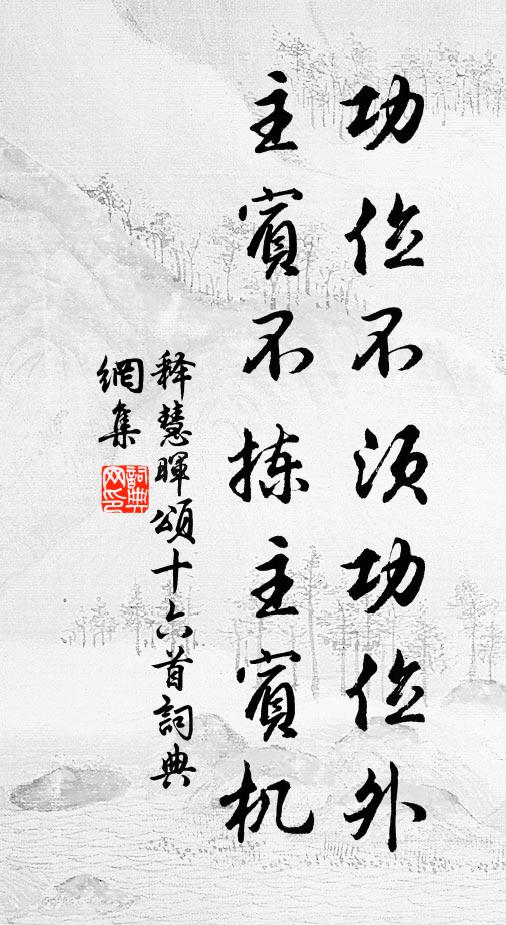 功位不须功位外
主賓不拣主賓机
释慧暉頌十六首詞典
網集
詞典网印